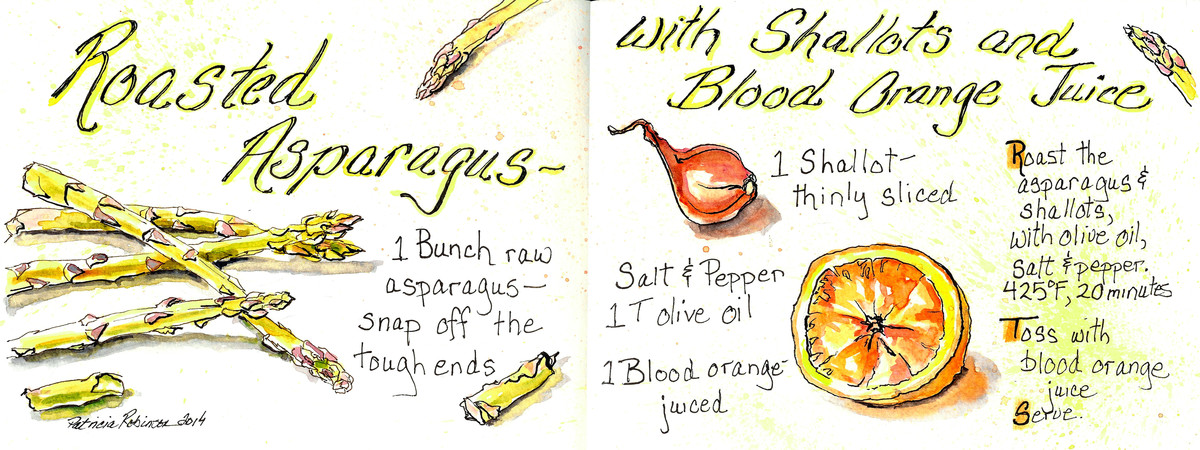 Roasted
Asparagus~
1 Bunch raw
asparagus—
snap off the
tough ends
Patricia Robinson 2014
with Shallots and
Blood Orange Juice
1 Shallot—
thinly sliced
Salt & Pepper
1 T olive oil
1 Blood orange-
juiced
Roast the
asparagus &
shallots,
with olive oil,
salt & pepper.
425°F, 20 minutes
Toss with
blood orange
juice
Serve.